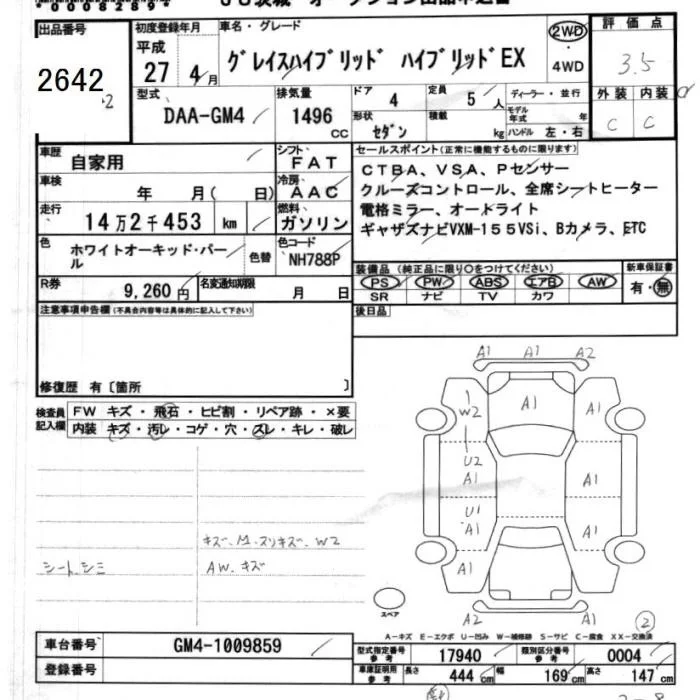 *0008289*
出品番号
2642
2
初度登録年月
平成
27 4月
車名・グレード
グレイスハイブリッド ハイブリッドEX
2WD
・
4WD
評価点
3.5
外装 内装
C C
型式
DAA-GM4
排気量
1496
CC
ドア
4
定員
5人
形状
セダン
積載
kg
ディーラー・並行
モデル年式 年
ハンドル 左・右
車歴
自家用
シフト
FAT
車検
年 月( 日)
冷房
AAC
走行
14万2千453 km
燃料
ガソリン
色
ホワイトオーキッド・パール
色替
色コード
NH788P
R券
9,260円
名変通知期限
月 日
セールスポイント(正常に機能するものに限ります)
CTBA、VSA、Pセンサー
クルーズコントロール、全席シートヒーター
電格ミラー、オートライト
ギャザズナビVXM-155VSi、Bカメラ、ETC
装備品(純正品に限り○をつけてください)
PS・PW・ABS・エアB・AW
SR ナビ TV カワ
新車保証書
有・無
後日品
注意事項申告欄(不具合内容等は具体的に記入して下さい)
修復歴 有〔箇所 〕
検査員記入欄
FW キズ・飛石・ヒビ割・リペア跡・×要
内装 キズ・汚レ・コゲ・穴・スレ・キレ・破レ
キズ、M、スリキズ、W2
シート、シミ
AW、キズ
A1 A1 A2
W2 A1 A1
U2 A1 A1
U1 A1 A1
A1 A1 A1
A2 A1 A1
スペア
2
A-キズ E-エクボ U-凹み W-補修跡 S-サビ C-腐食 XX-交換済
車台番号
GM4-1009859
登録番号
型式指定番号
参考
17940
類別区分番号
参考
0004
車庫証明用
参考
長さ 444 cm 幅 169 cm 高さ 147 cm